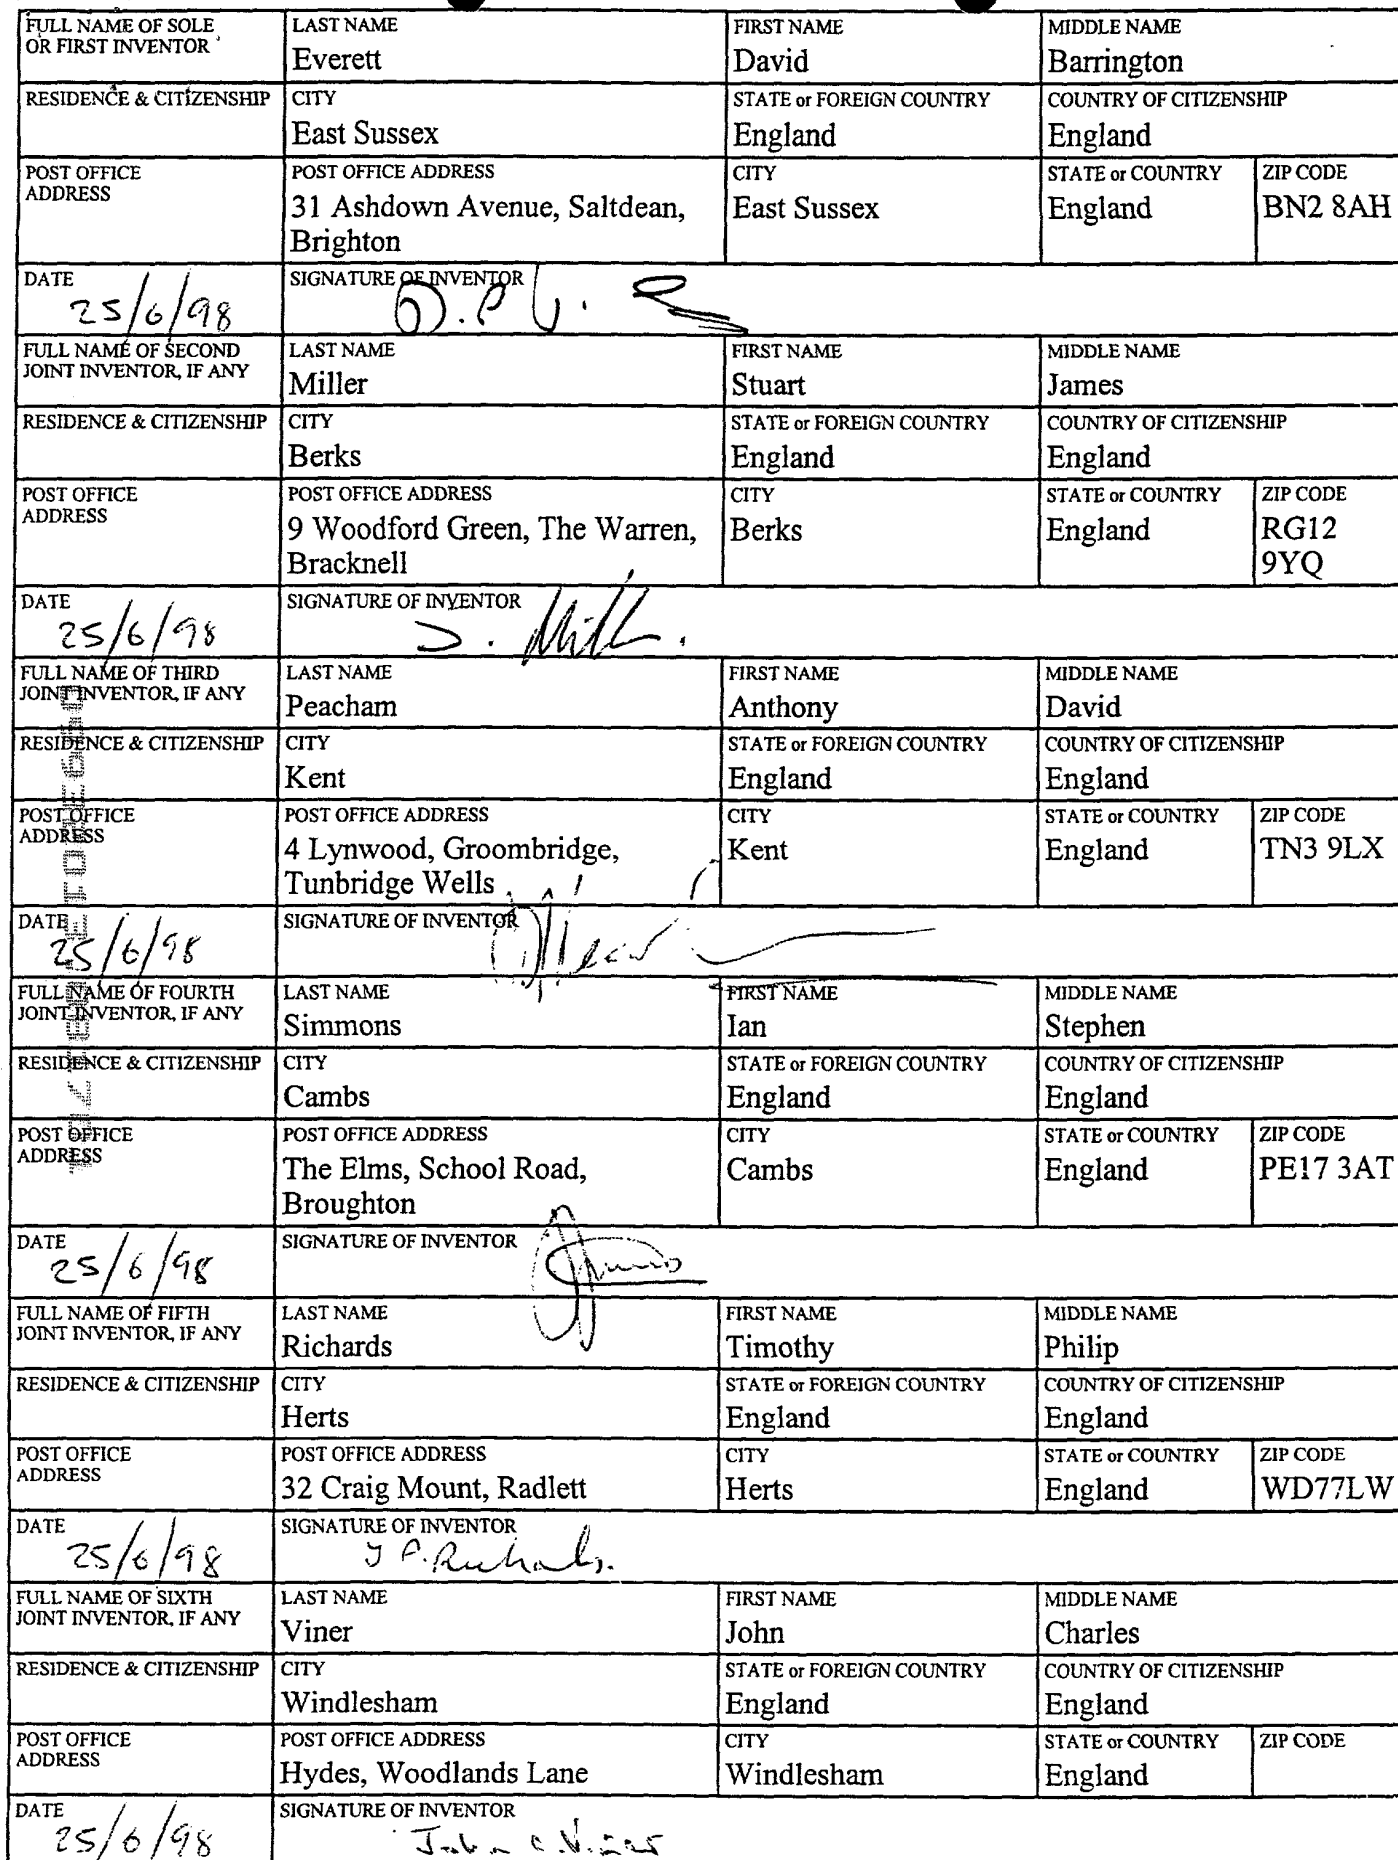 FULL NAME OF SOLE OR FIRST INVENTOR
LAST NAME
Everett
FIRST NAME
David
MIDDLE NAME
Barrington
RESIDENCE & CITIZENSHIP
CITY
East Sussex
STATE or FOREIGN COUNTRY
England
COUNTRY OF CITIZENSHIP
England
POST OFFICE
ADDRESS
POST OFFICE ADDRESS
31 Ashdown Avenue, Saltdean,
Brighton
CITY
East Sussex
STATE or COUNTRY
England
ZIP CODE
BN2 8AH
DATE
25/6/98
SIGNATURE OF INVENTOR
FULL NAME OF SECOND
JOINT INVENTOR, IF ANY
LAST NAME
Miller
FIRST NAME
Stuart
MIDDLE NAME
James
RESIDENCE & CITIZENSHIP
CITY
Berks
STATE or FOREIGN COUNTRY
England
COUNTRY OF CITIZENSHIP
England
POST OFFICE
ADDRESS
POST OFFICE ADDRESS
9 Woodford Green, The Warren,
Bracknell
CITY
Berks
STATE or COUNTRY
England
ZIP CODE
RG12
9YQ
DATE
25/6/98
SIGNATURE OF INVENTOR
FULL NAME OF THIRD
JOINT INVENTOR, IF ANY
LAST NAME
Peacham
FIRST NAME
Anthony
MIDDLE NAME
David
RESIDENCE & CITIZENSHIP
CITY
Kent
STATE or FOREIGN COUNTRY
England
COUNTRY OF CITIZENSHIP
England
POST OFFICE
ADDRESS
POST OFFICE ADDRESS
4 Lynwood, Groombridge,
Tunbridge Wells
CITY
Kent
STATE or COUNTRY
England
ZIP CODE
TN3 9LX
DATE
25/6/98
SIGNATURE OF INVENTOR
FULL NAME OF FOURTH
JOINT INVENTOR, IF ANY
LAST NAME
Simmons
FIRST NAME
Ian
MIDDLE NAME
Stephen
RESIDENCE & CITIZENSHIP
CITY
Cambs
STATE or FOREIGN COUNTRY
England
COUNTRY OF CITIZENSHIP
England
POST OFFICE
ADDRESS
POST OFFICE ADDRESS
The Elms, School Road,
Broughton
CITY
Cambs
STATE or COUNTRY
England
ZIP CODE
PE17 3AT
DATE
25/6/98
SIGNATURE OF INVENTOR
FULL NAME OF FIFTH
JOINT INVENTOR, IF ANY
LAST NAME
Richards
FIRST NAME
Timothy
MIDDLE NAME
Philip
RESIDENCE & CITIZENSHIP
CITY
Herts
STATE or FOREIGN COUNTRY
England
COUNTRY OF CITIZENSHIP
England
POST OFFICE
ADDRESS
POST OFFICE ADDRESS
32 Craig Mount, Radlett
CITY
Herts
STATE or COUNTRY
England
ZIP CODE
WD77LW
DATE
25/6/98
SIGNATURE OF INVENTOR
FULL NAME OF SIXTH
JOINT INVENTOR, IF ANY
LAST NAME
Viner
FIRST NAME
John
MIDDLE NAME
Charles
RESIDENCE & CITIZENSHIP
CITY
Windlesham
STATE or FOREIGN COUNTRY
England
COUNTRY OF CITIZENSHIP
England
POST OFFICE
ADDRESS
POST OFFICE ADDRESS
Hydes, Woodlands Lane
CITY
Windlesham
STATE or COUNTRY
England
ZIP CODE
DATE
25/6/98
SIGNATURE OF INVENTOR